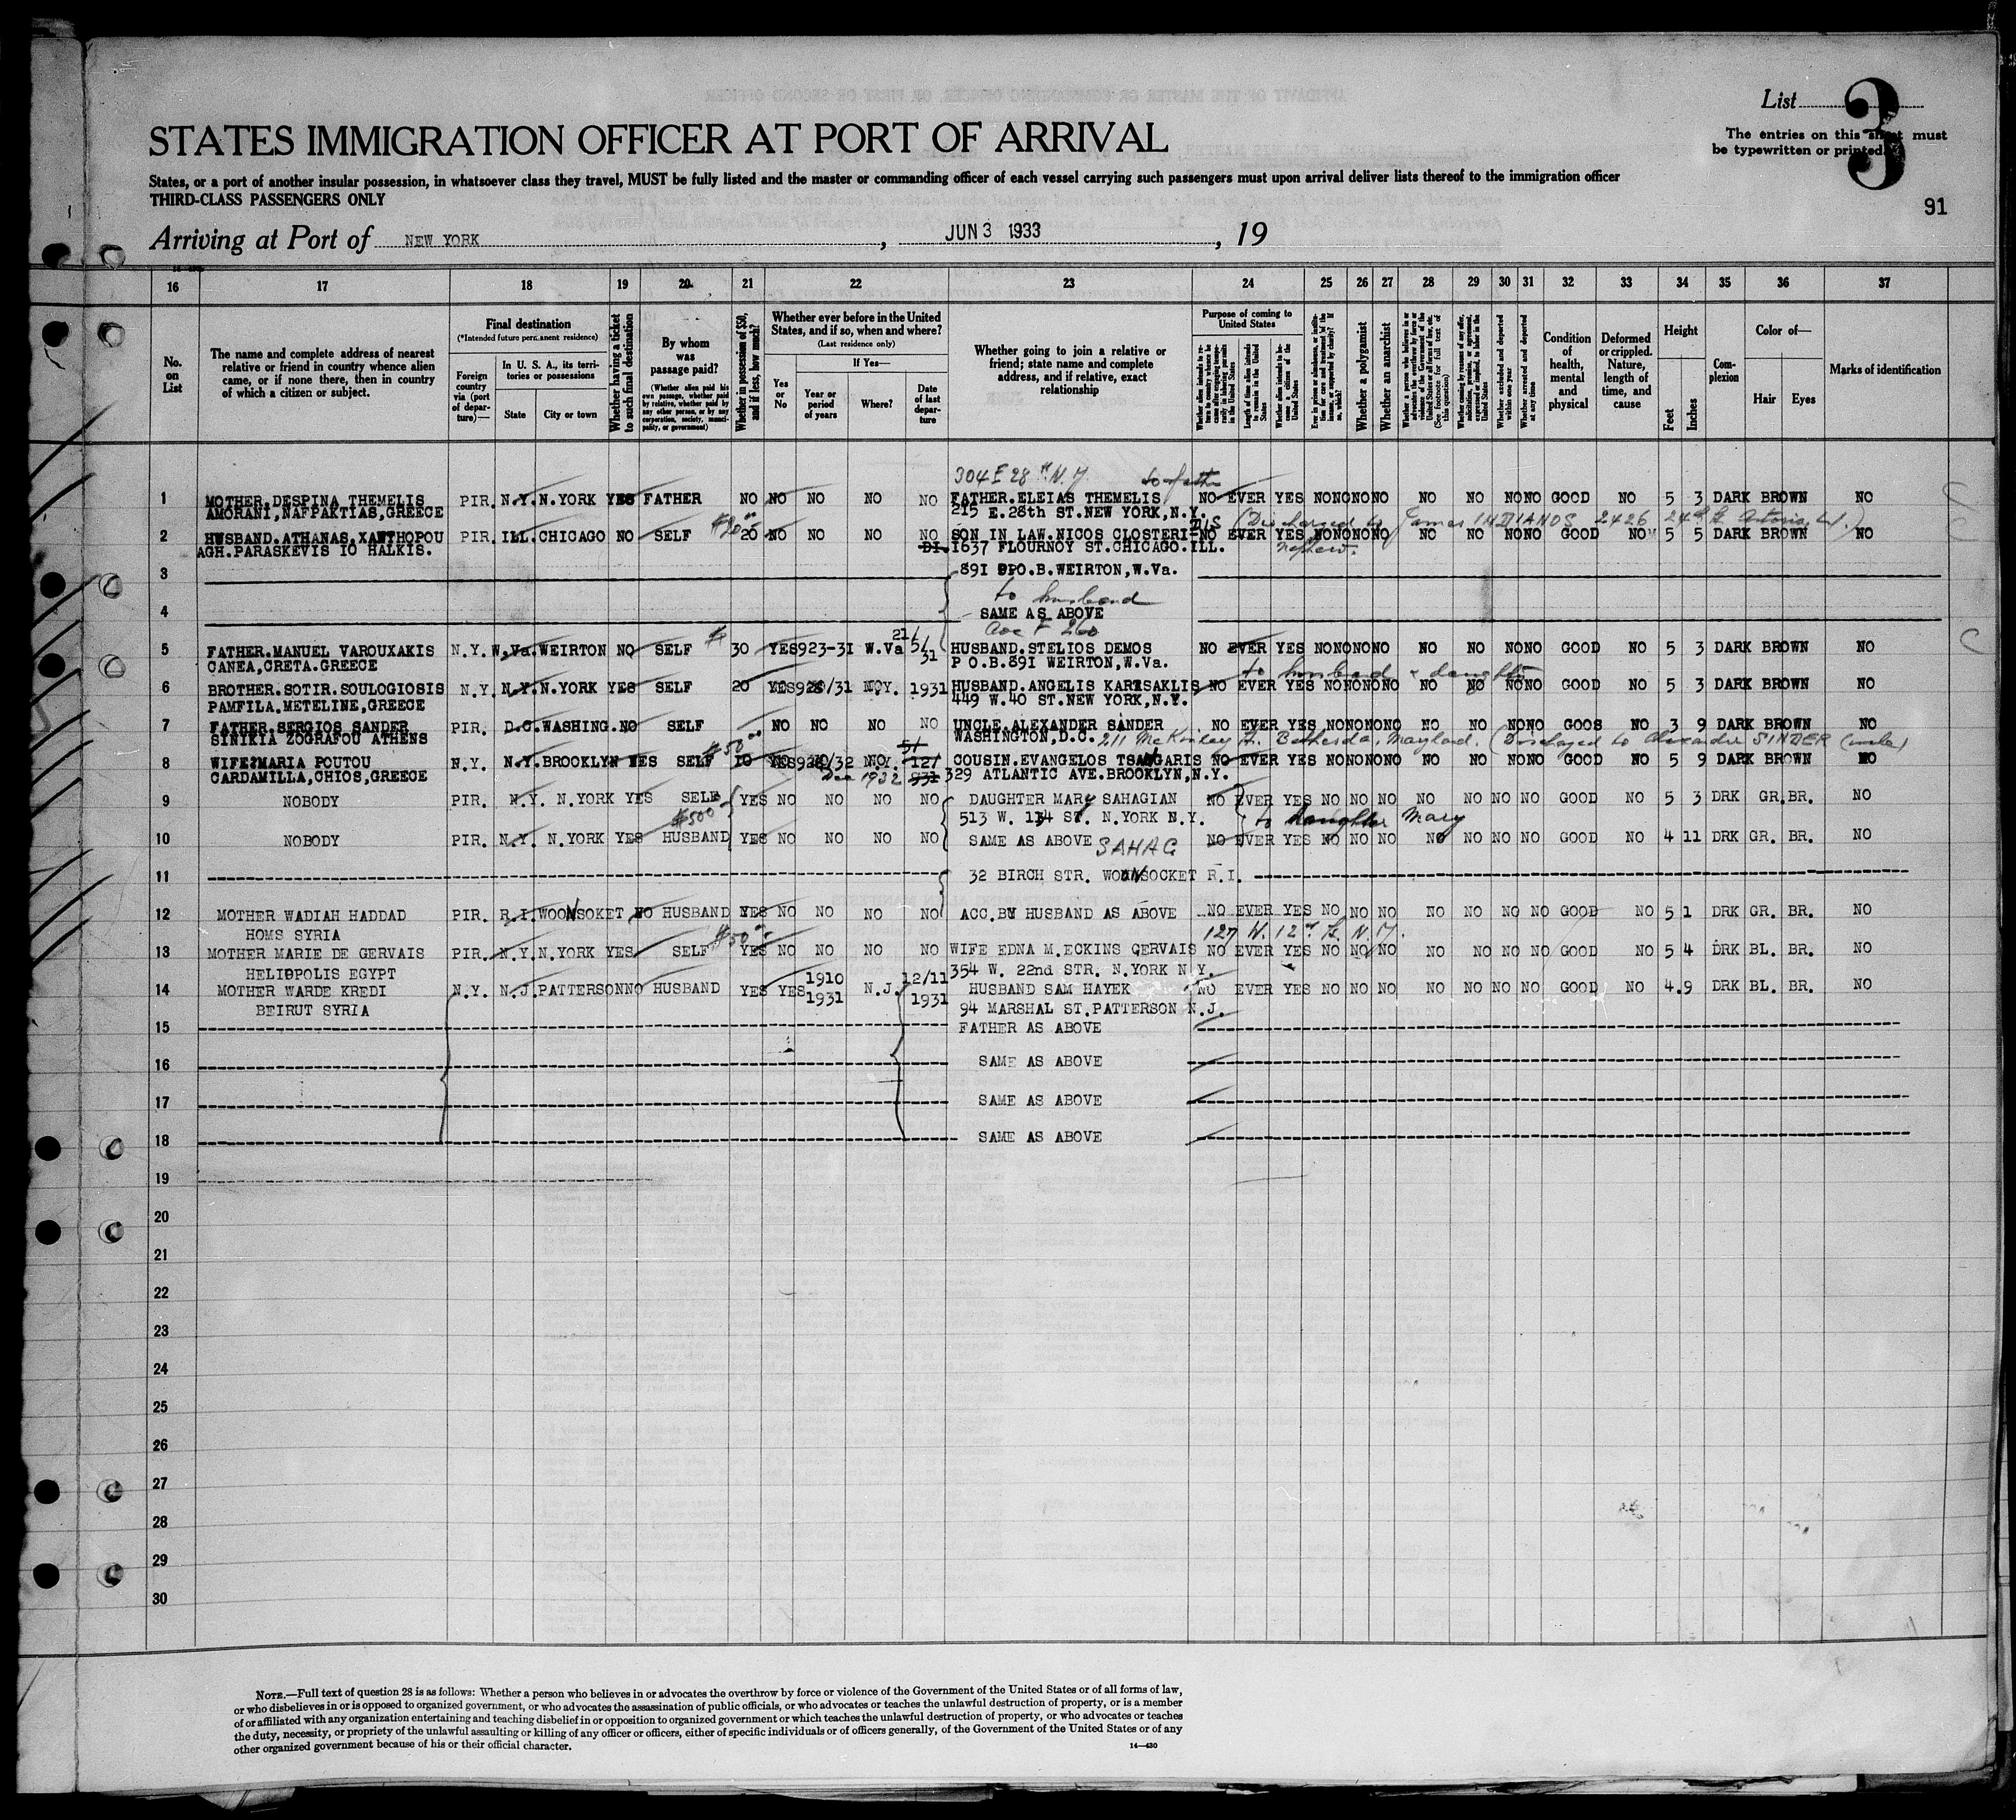 List 3
STATES IMMIGRATION OFFICER AT PORT OF ARRIVAL
The entries on this sheet must
be typewritten or printed.
States, or a port of another insular possession, in whatsoever class they travel, MUST be fully listed and the master or commanding officer of each vessel carrying such passengers must upon arrival deliver lists thereof to the immigration officer
THIRD-CLASS PASSENGERS ONLY
91
Arriving at Port of NEW YORK , JUN 3 1933 , 19
16 17 18 19 20 21 22 23 24 25 26 27 28 29 30 31 32 33 34 35 36 37
No. on List
The name and complete address of nearest relative or friend in country whence alien came, or if none there, then in country of which a citizen or subject.
Final destination
(*Intended future permanent residence)
Foreign country via (port of departure)—
In U. S. A., its territories or possessions
State
City or town
Whether having a ticket to such final destination
By whom was passage paid?
(Whether alien paid his own passage, whether paid by relative, whether paid by any other person, or by any corporation, society, municipality, or government)
Whether in possession of $50, and if less, how much?
Whether ever before in the United States, and if so, when and where?
(Last residence only)
If Yes—
Yes or No
Year or period of years
Where?
Date of last departure
Whether going to join a relative or friend; state name and complete address, and if relative, exact relationship
Purpose of coming to United States
Length of time alien intends to remain in the United States
Whether alien intends to become a citizen of the United States
Whether a polygamist
Whether an anarchist
(See footnote for full text of this question)
Whether arrested and deported at any time
Condition of health, mental and physical
Deformed or crippled. Nature, length of time, and cause
Height
Feet
Inches
Complexion
Color of—
Hair
Eyes
Marks of identification
304 E 28 St N.Y. to father
1 MOTHER.DESPINA THEMELIS PIR. N.Y. N.YORK YES FATHER NO NO NO NO NO FATHER.ELEIAS THEMELIS NO EVER YES NO NO NO NO NO NO NO NO GOOD NO 5 3 DARK BROWN NO
AMORANI,NAFPAKTIAS,GREECE 215 E.28th ST.NEW YORK,N.Y.
DIS (Discharged to James INDIANOS 2426 24th St Astoria L.I.)
2 HUSBAND.ATHANAS.XANTHOPOU PIR. ILL. CHICAGO NO SELF 20 NO NO NO NO SON IN LAW.NICOS CLOSTERI- NO EVER YES NO NO NO NO NO NO NO NO GOOD NO 5 5 DARK BROWN NO
AGH.PARASKEVIS 10 HALKIS. 1637 FLOURNOY ST.CHICAGO.ILL. nephew.
3 891 PO.B.WEIRTON,W.Va.
to husband
4 SAME AS ABOVE
5 FATHER.MANUEL VAROUXAKIS N.Y. W.Va. WEIRTON NO SELF $ 30 YES 923-31 W.Va 21/5/31 HUSBAND.STELIOS DEMOS NO EVER YES NO NO NO NO NO NO NO NO GOOD NO 5 3 DARK BROWN NO
CANEA,CRETA.GREECE P O.B.891 WEIRTON,W.Va.
to husband & daughter
6 BROTHER.SOTIR.SOULOGIOSIS N.Y. N.Y. N.YORK YES SELF 20 YES 928/31 N.Y. 1931 HUSBAND.ANGELIS KARTSAKLIS NO EVER YES NO NO NO NO NO NO NO NO GOOD NO 5 3 DARK BROWN NO
PAMFILA.METELINE,GREECE 449 W.40 ST.NEW YORK,N.Y.
7 FATHER.SERGIOS SANDER PIR. D.C. WASHING. NO SELF NO NO NO NO UNCLE.ALEXANDER SANDER NO EVER YES NO NO NO NO NO NO NO NO GOOS NO 3 9 DARK BROWN NO
SINIKIA ZOGRAFOU ATHENS WASHINGTON,D.C. 211 McKinley St. Bethesda, Maryland. (Discharged to Alexander SINDER (uncle)
8 WIFE:MARIA POUTOU N.Y. N.Y. BROOKLYN YES SELF $50 10 YES 928/32 N.Y. COUSIN.EVANGELOS TSANGARIS NO EVER YES NO NO NO NO NO NO NO NO GOOD NO 5 9 DARK BROWN NO
CARDAMILLA,CHIOS,GREECE Dec 1932 329 ATLANTIC AVE.BROOKLYN,N.Y.
9 NOBODY PIR. N.Y. N.YORK YES SELF YES NO NO NO NO DAUGHTER MARY SAHAGIAN NO EVER YES NO NO NO NO NO NO NO GOOD NO 5 3 DRK GR. BR. NO
$500 513 W. 134 ST. N.YORK N.Y. to daughter Mary
10 NOBODY PIR. N.Y. N.YORK YES HUSBAND YES NO NO NO NO SAME AS ABOVE SAHAG NO EVER YES NO NO NO NO NO NO NO GOOD NO 4 11 DRK GR. BR. NO
11 32 BIRCH STR. WOONSOCKET R.I.
12 MOTHER WADIAH HADDAD PIR. R.I. WOONSOKET NO HUSBAND YES NO NO NO NO ACC.BY HUSBAND AS ABOVE NO EVER YES NO NO NO NO NO NO NO GOOD NO 5 1 DRK GR. BR. NO
HOMS SYRIA $50 127 W. 12th St. N.Y.
13 MOTHER MARIE DE GERVAIS PIR. N.Y. N.YORK YES SELF YES NO NO NO NO WIFE EDNA M.ECKINS GERVAIS NO EVER YES NO NO NO NO NO NO NO GOOD NO 5 4 DRK BL. BR. NO
HELIOPOLIS EGYPT 354 W. 22nd STR. N.YORK N.Y.
14 MOTHER WARDE KREDI N.Y. N.J. PATTERSON NO HUSBAND YES YES 1910 1931 N.J. 12/11 1931 HUSBAND SAM HAYEK NO EVER YES NO NO NO NO NO NO NO GOOD NO 4.9 DRK BL. BR. NO
BEIRUT SYRIA 94 MARSHAL ST.PATTERSON N.J.
15 FATHER AS ABOVE
16 SAME AS ABOVE
17 SAME AS ABOVE
18 SAME AS ABOVE
19
20
21
22
23
24
25
26
27
28
29
30
NOTE.—Full text of question 28 is as follows: Whether a person who believes in or advocates the overthrow by force or violence of the Government of the United States or of all forms of law,
or who disbelieves in or is opposed to organized government, or who advocates the assassination of public officials, or who advocates or teaches the unlawful destruction of property, or is a member
of or affiliated with any organization entertaining and teaching disbelief in or opposition to organized government or which teaches the unlawful destruction of property, or who advocates or teaches
the duty, necessity, or propriety of the unlawful assaulting or killing of any officer or officers, either of specific individuals or of officers generally, of the Government of the United States or of any
other organized government because of his or their official character.
14—430